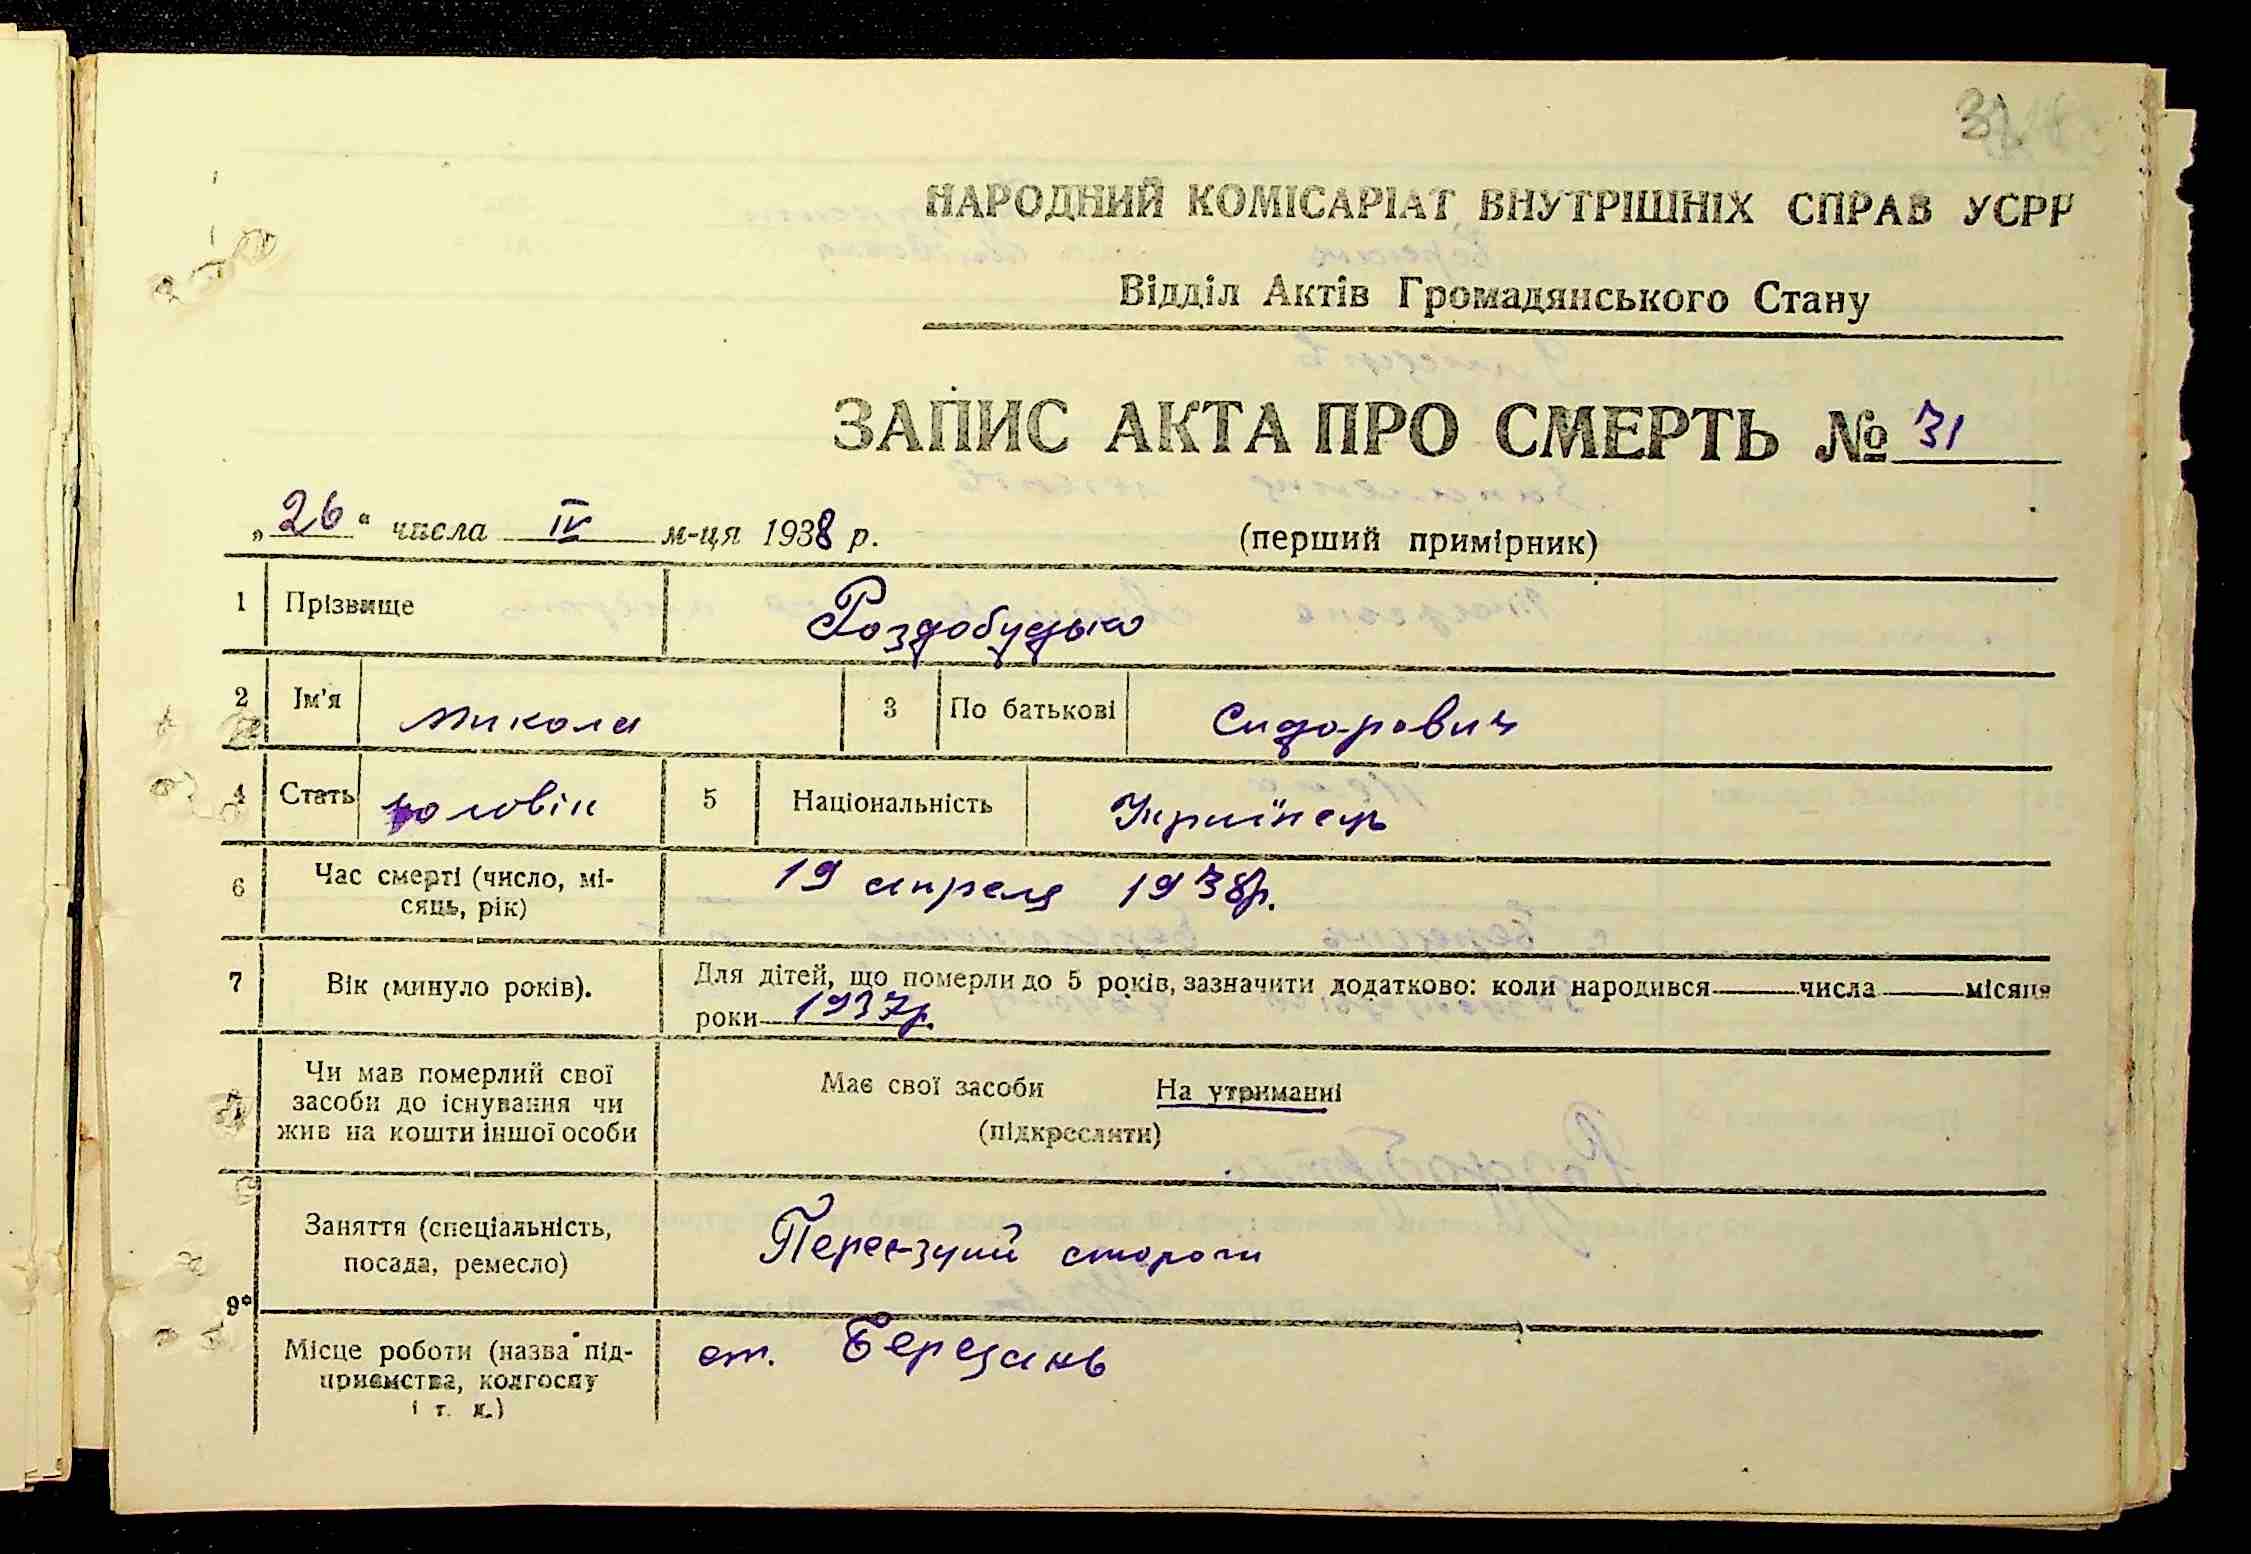 НАРОДНИЙ КОМІСАРІАТ ВНУТРІШНІХ СПРАВ УСРР
Відділ Актів Громадянського Стану
ЗАПИС АКТА ПРО СМЕРТЬ № 31
„26“ числа IV м-ця 1938 р. (перший примірник)
1 Прізвище Роздобудько
2 Ім'я Микола 3 По батькові Сидорович
4 Стать чоловік 5 Національність Українець
6 Час смерті (число, мі-
сяць, рік) 19 апреля 1938р.
7 Вік (минуло років). Для дітей, що померли до 5 років, зазначити додатково: коли народився числа місяця
роки 1937р.
Чи мав померлий свої
засоби до існування чи
жив на кошти іншої особи
Має свої засоби На утриманні
(підкреслити)
Заняття (спеціальність,
посада, ремесло)
сторож
9
Місце роботи (назва під-
приємства, колгоспу
і т. д.)
ст. Березань